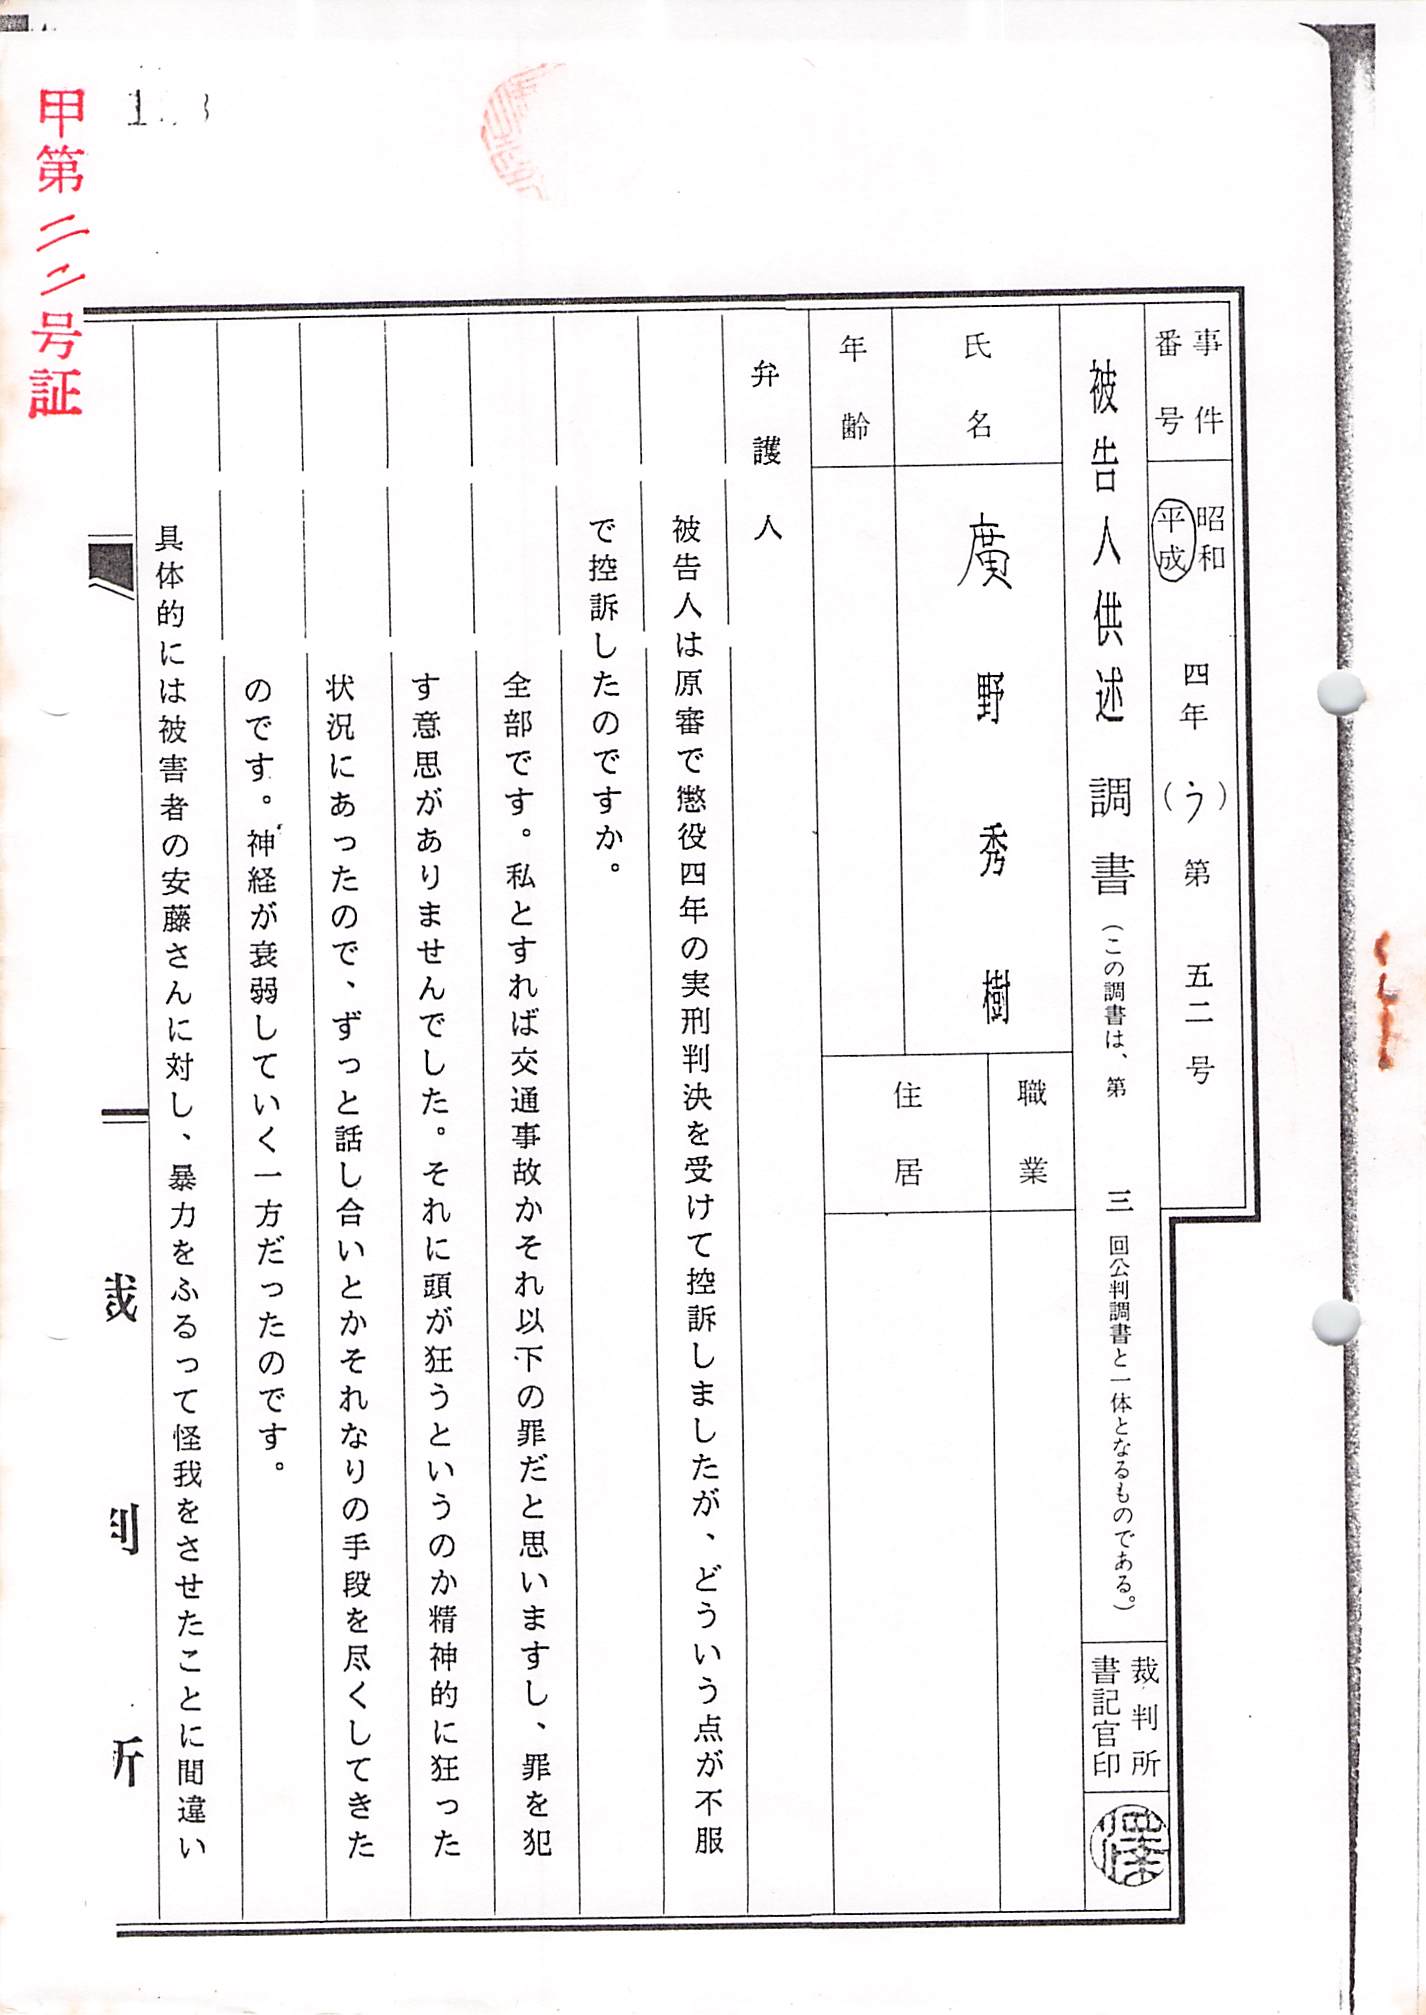 事件番号
昭和
平成
四年（う）第五二号
被告人供述調書（この調書は、第三回公判調書と一体となるものである。）
裁判所書記官印
氏名
廣野秀樹
職業
年齢
住居
弁護人
被告人は原審で懲役四年の実刑判決を受けて控訴しましたが、どういう点が不服
で控訴したのですか。
全部です。私とすれば交通事故かそれ以下の罪だと思いますし、罪を犯
す意思がありませんでした。それに頭が狂うというのか精神的に狂った
状況にあったので、ずっと話し合いとかそれなりの手段を尽くしてきた
のです。神経が衰弱していく一方だったのです。
具体的には被害者の安藤さんに対し、暴力をふるって怪我をさせたことに間違い
裁判所
甲第二二号証